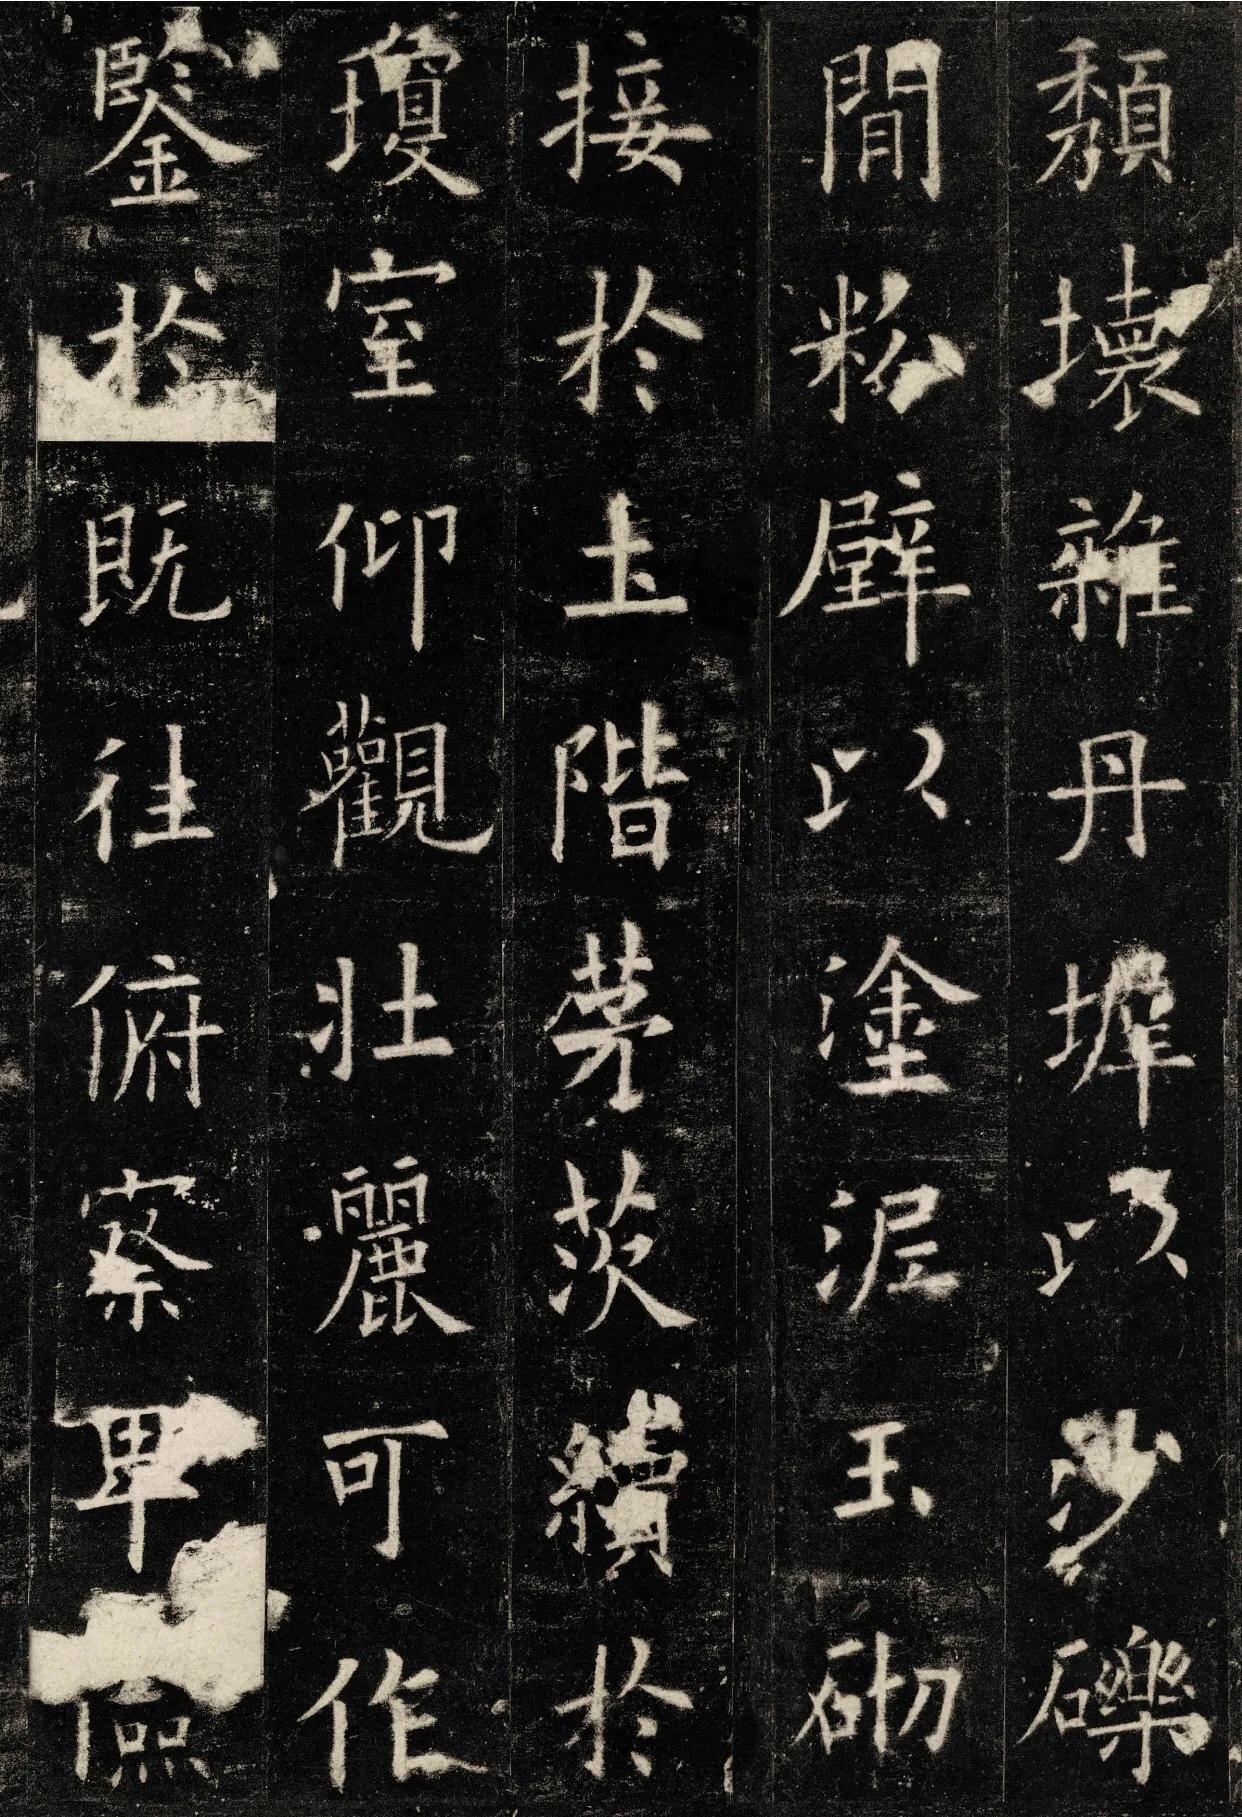 頽壞雜丹墀以沙礫
間粉壁以塗泥玉砌
接於土階茅茨續於
瓊室仰觀壯麗可作
鑒於既往俯察卑儉